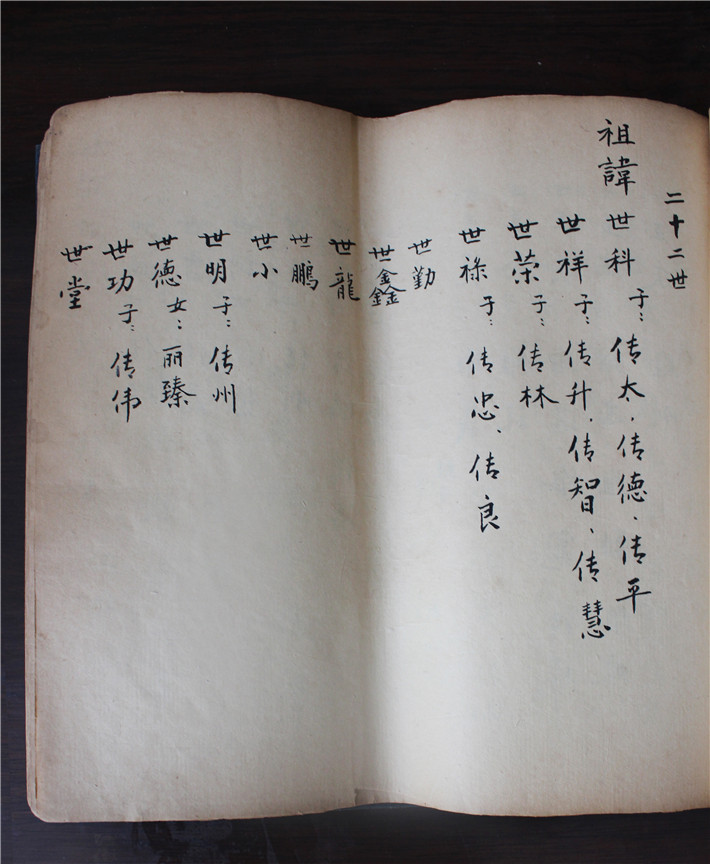 二十二世
祖諱 世科 子：传太、传德、传平
世祥 子：传升、传智、传慧
世荣 子：传林
世祿 子：传忠、传良
世勤
世鑫
世龍
世鵬
世小
世明 子：传州
世德 女：丽臻
世功 子：传伟
世堂